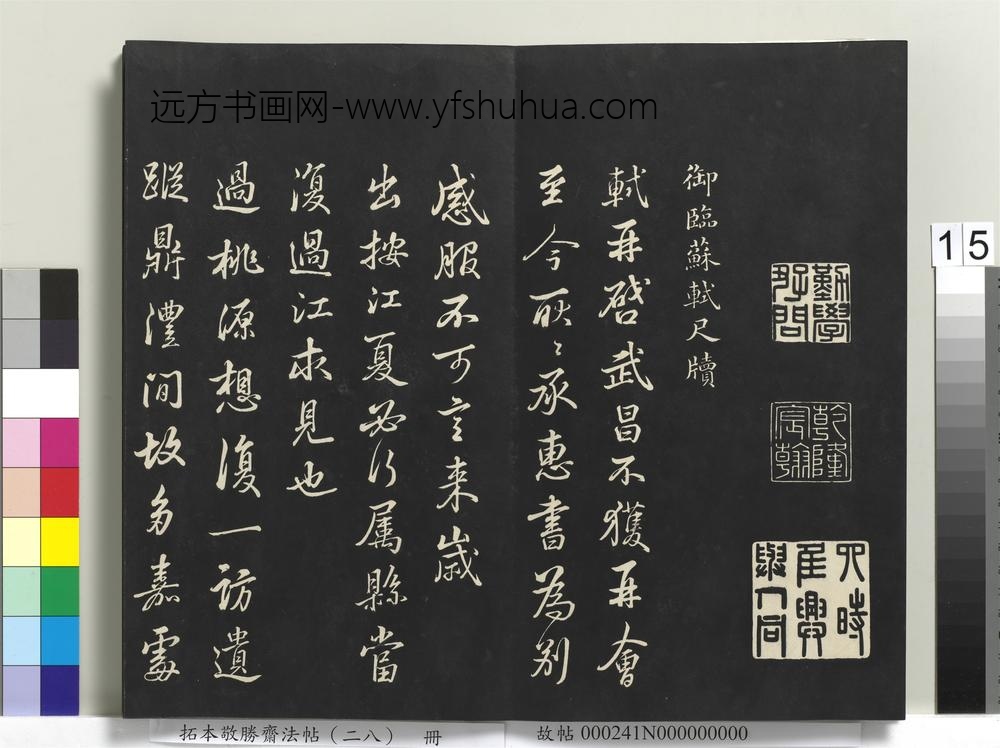 远方书画网-www.yfshuhua.com
勤學好問
乾隆宸翰
四時佳興與人同
御臨蘇軾尺牘
軾再啓武昌不獲再會
至今耿〻承惠書為別
感服不可言来歲
出按江夏必行属縣當
復過江求見也
過桃源想復一訪遺
蹤鼎澧間故多嘉處
15
拓本敬勝齋法帖（二八） 冊
故帖 000241N000000000